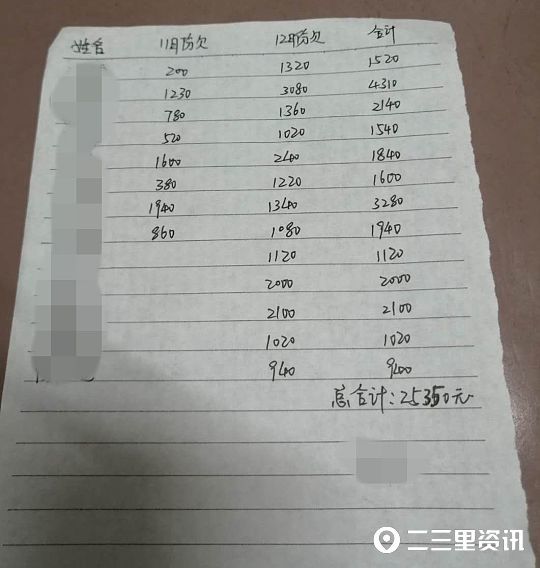 姓名 11月防欠 12月防欠 合计
200 1320 1520
1230 3080 4310
780 1360 2140
520 1020 1540
1600 240 1840
380 1220 1600
1940 1340 3280
860 1080 1940
1120 1120
2000 2000
2100 2100
1020 1020
940 940
总合计:25350元
二三里资讯